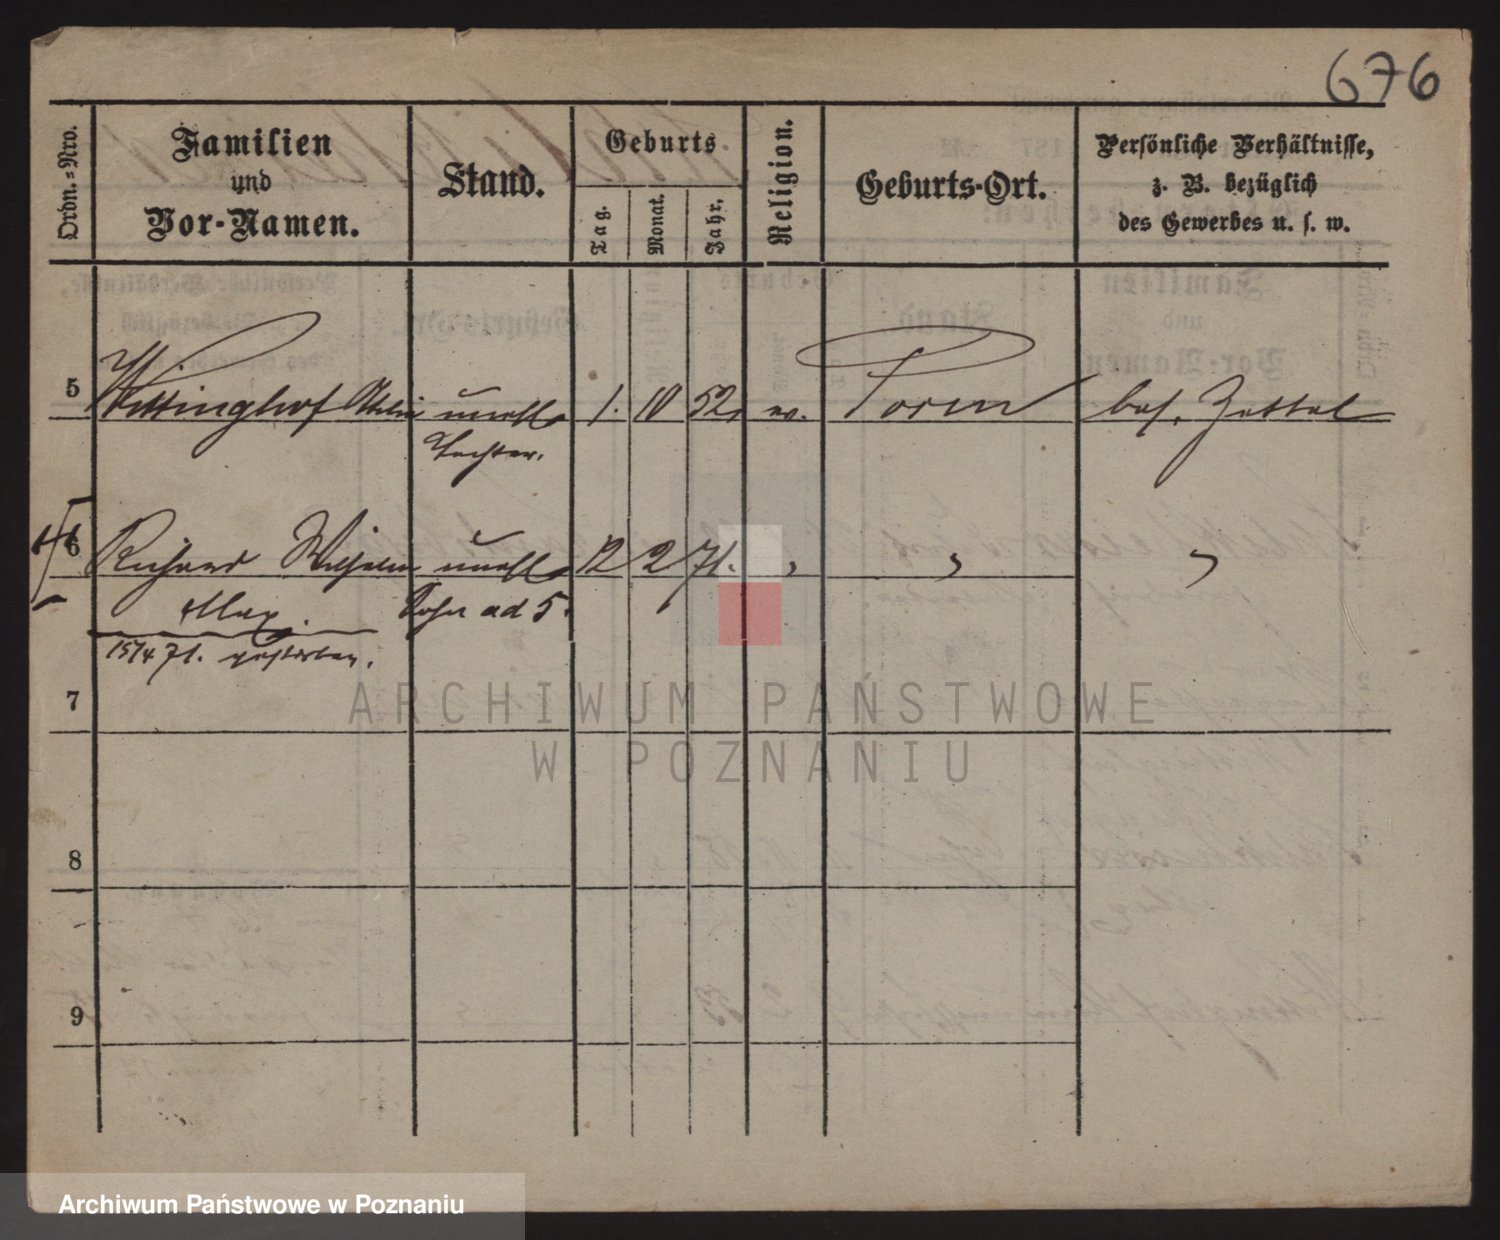 676
Ordn.=Nro.
Familien
und
Vor-Namen.
Stand.
Geburts
Tag.
Monat.
Jahr.
Religion.
Geburts-Ort.
Persönliche Verhältnisse,
z. B. bezüglich
des Gewerbes u. s. w.
5 Wittinghof unehl 1. 10 52 ev. Posen bes. Zettel
Tochter.
6 Richard Wilhelm unehl 12 2 71. " " "
Max. Sohn ad 5.
15/4 71. gestorben.
7
8
9
ARCHIWUM PAŃSTWOWE
W POZNANIU
Archiwum Państwowe w Poznaniu